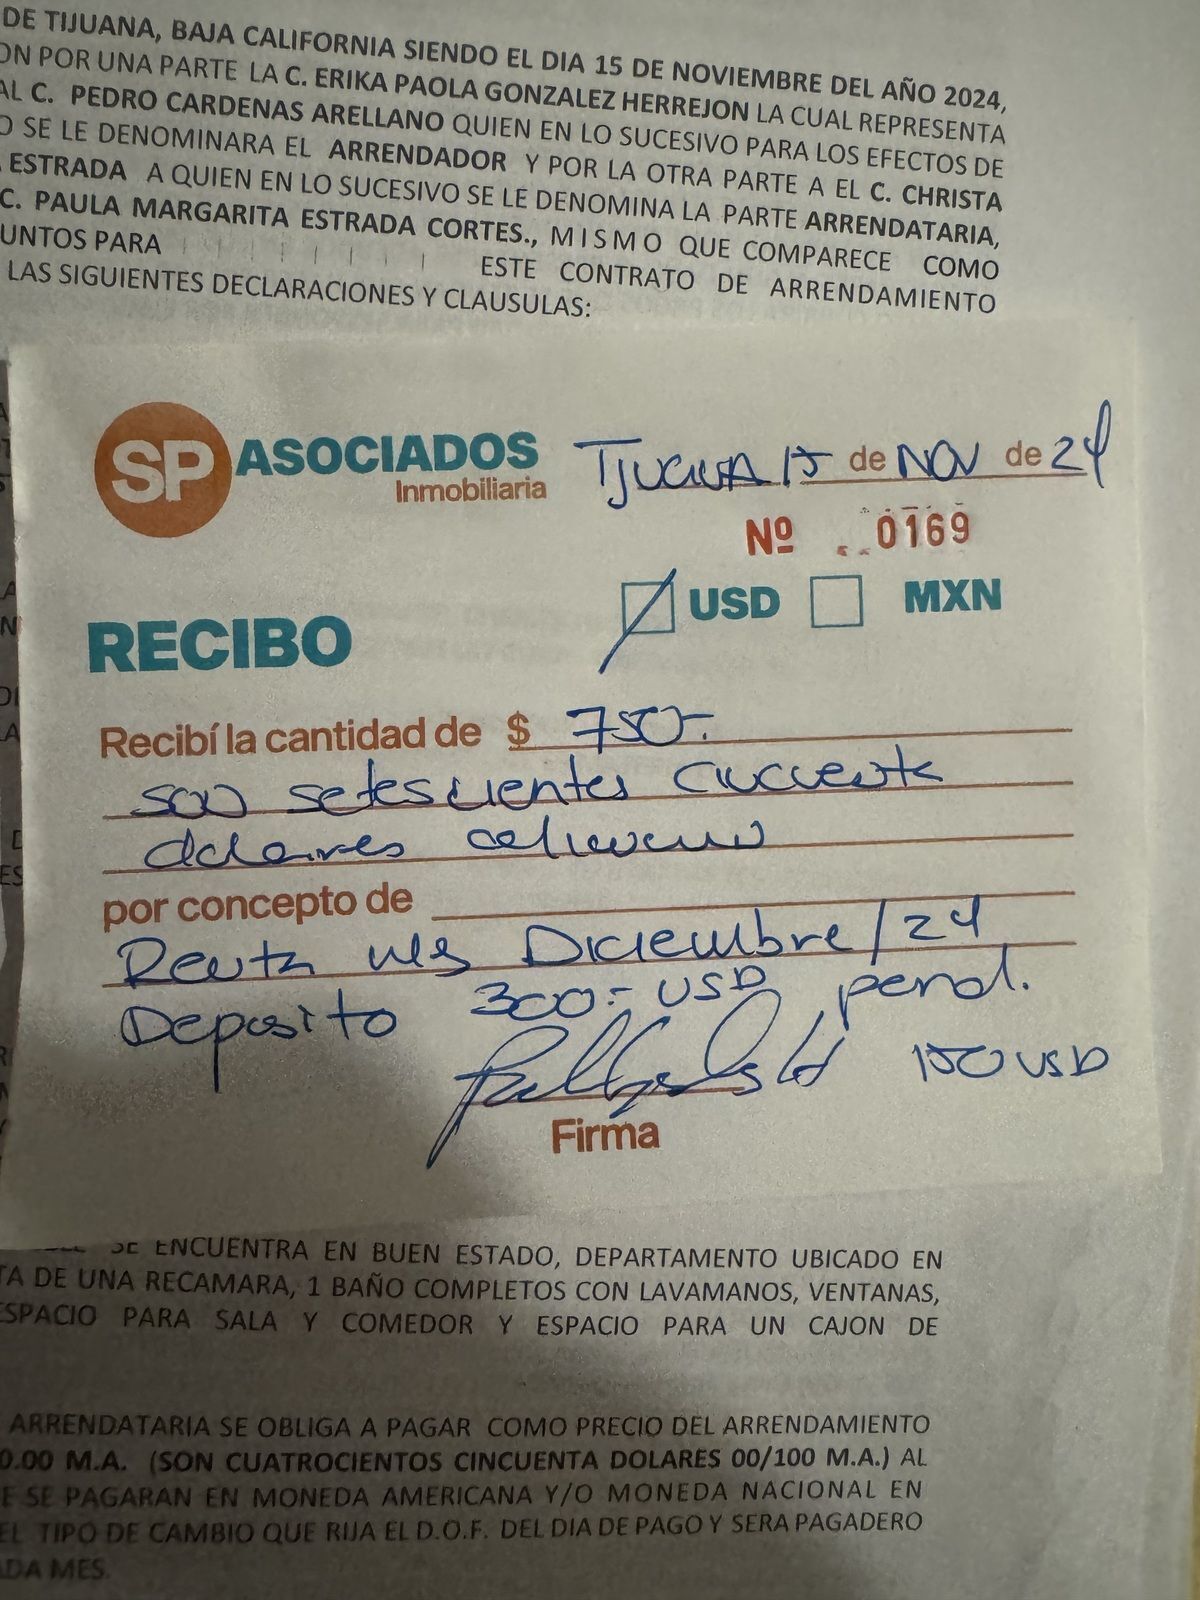 DE TIJUANA, BAJA CALIFORNIA SIENDO EL DIA 15 DE NOVIEMBRE DEL AÑO 2024,
ON POR UNA PARTE LA C. ERIKA PAOLA GONZALEZ HERREJON LA CUAL REPRESENTA
AL C. PEDRO CARDENAS ARELLANO QUIEN EN LO SUCESIVO PARA LOS EFECTOS DE
O SE LE DENOMINARA EL ARRENDADOR Y POR LA OTRA PARTE A EL C. CHRISTA
ESTRADA A QUIEN EN LO SUCESIVO SE LE DENOMINA LA PARTE ARRENDATARIA,
C. PAULA MARGARITA ESTRADA CORTES., MISMO QUE COMPARECE COMO
UNTOS PARA ESTE CONTRATO DE ARRENDAMIENTO
LAS SIGUIENTES DECLARACIONES Y CLAUSULAS:
SP ASOCIADOS
Inmobiliaria
Tijuana 15 de NOV de 24
Nº 0169
USD MXN
RECIBO
Recibí la cantidad de $ 750-.
son setescientes cincuenta
dolares
por concepto de
Renta mes Diciembre/24
Deposito 300.- USD pend.
150 USD
Firma
SE ENCUENTRA EN BUEN ESTADO, DEPARTAMENTO UBICADO EN
TA DE UNA RECAMARA, 1 BAÑO COMPLETOS CON LAVAMANOS, VENTANAS,
ESPACIO PARA SALA Y COMEDOR Y ESPACIO PARA UN CAJON DE
ARRENDATARIA SE OBLIGA A PAGAR COMO PRECIO DEL ARRENDAMIENTO
0.00 M.A. (SON CUATROCIENTOS CINCUENTA DOLARES 00/100 M.A.) AL
E SE PAGARAN EN MONEDA AMERICANA Y/O MONEDA NACIONAL EN
EL TIPO DE CAMBIO QUE RIJA EL D.O.F. DEL DIA DE PAGO Y SERA PAGADERO
ADA MES.